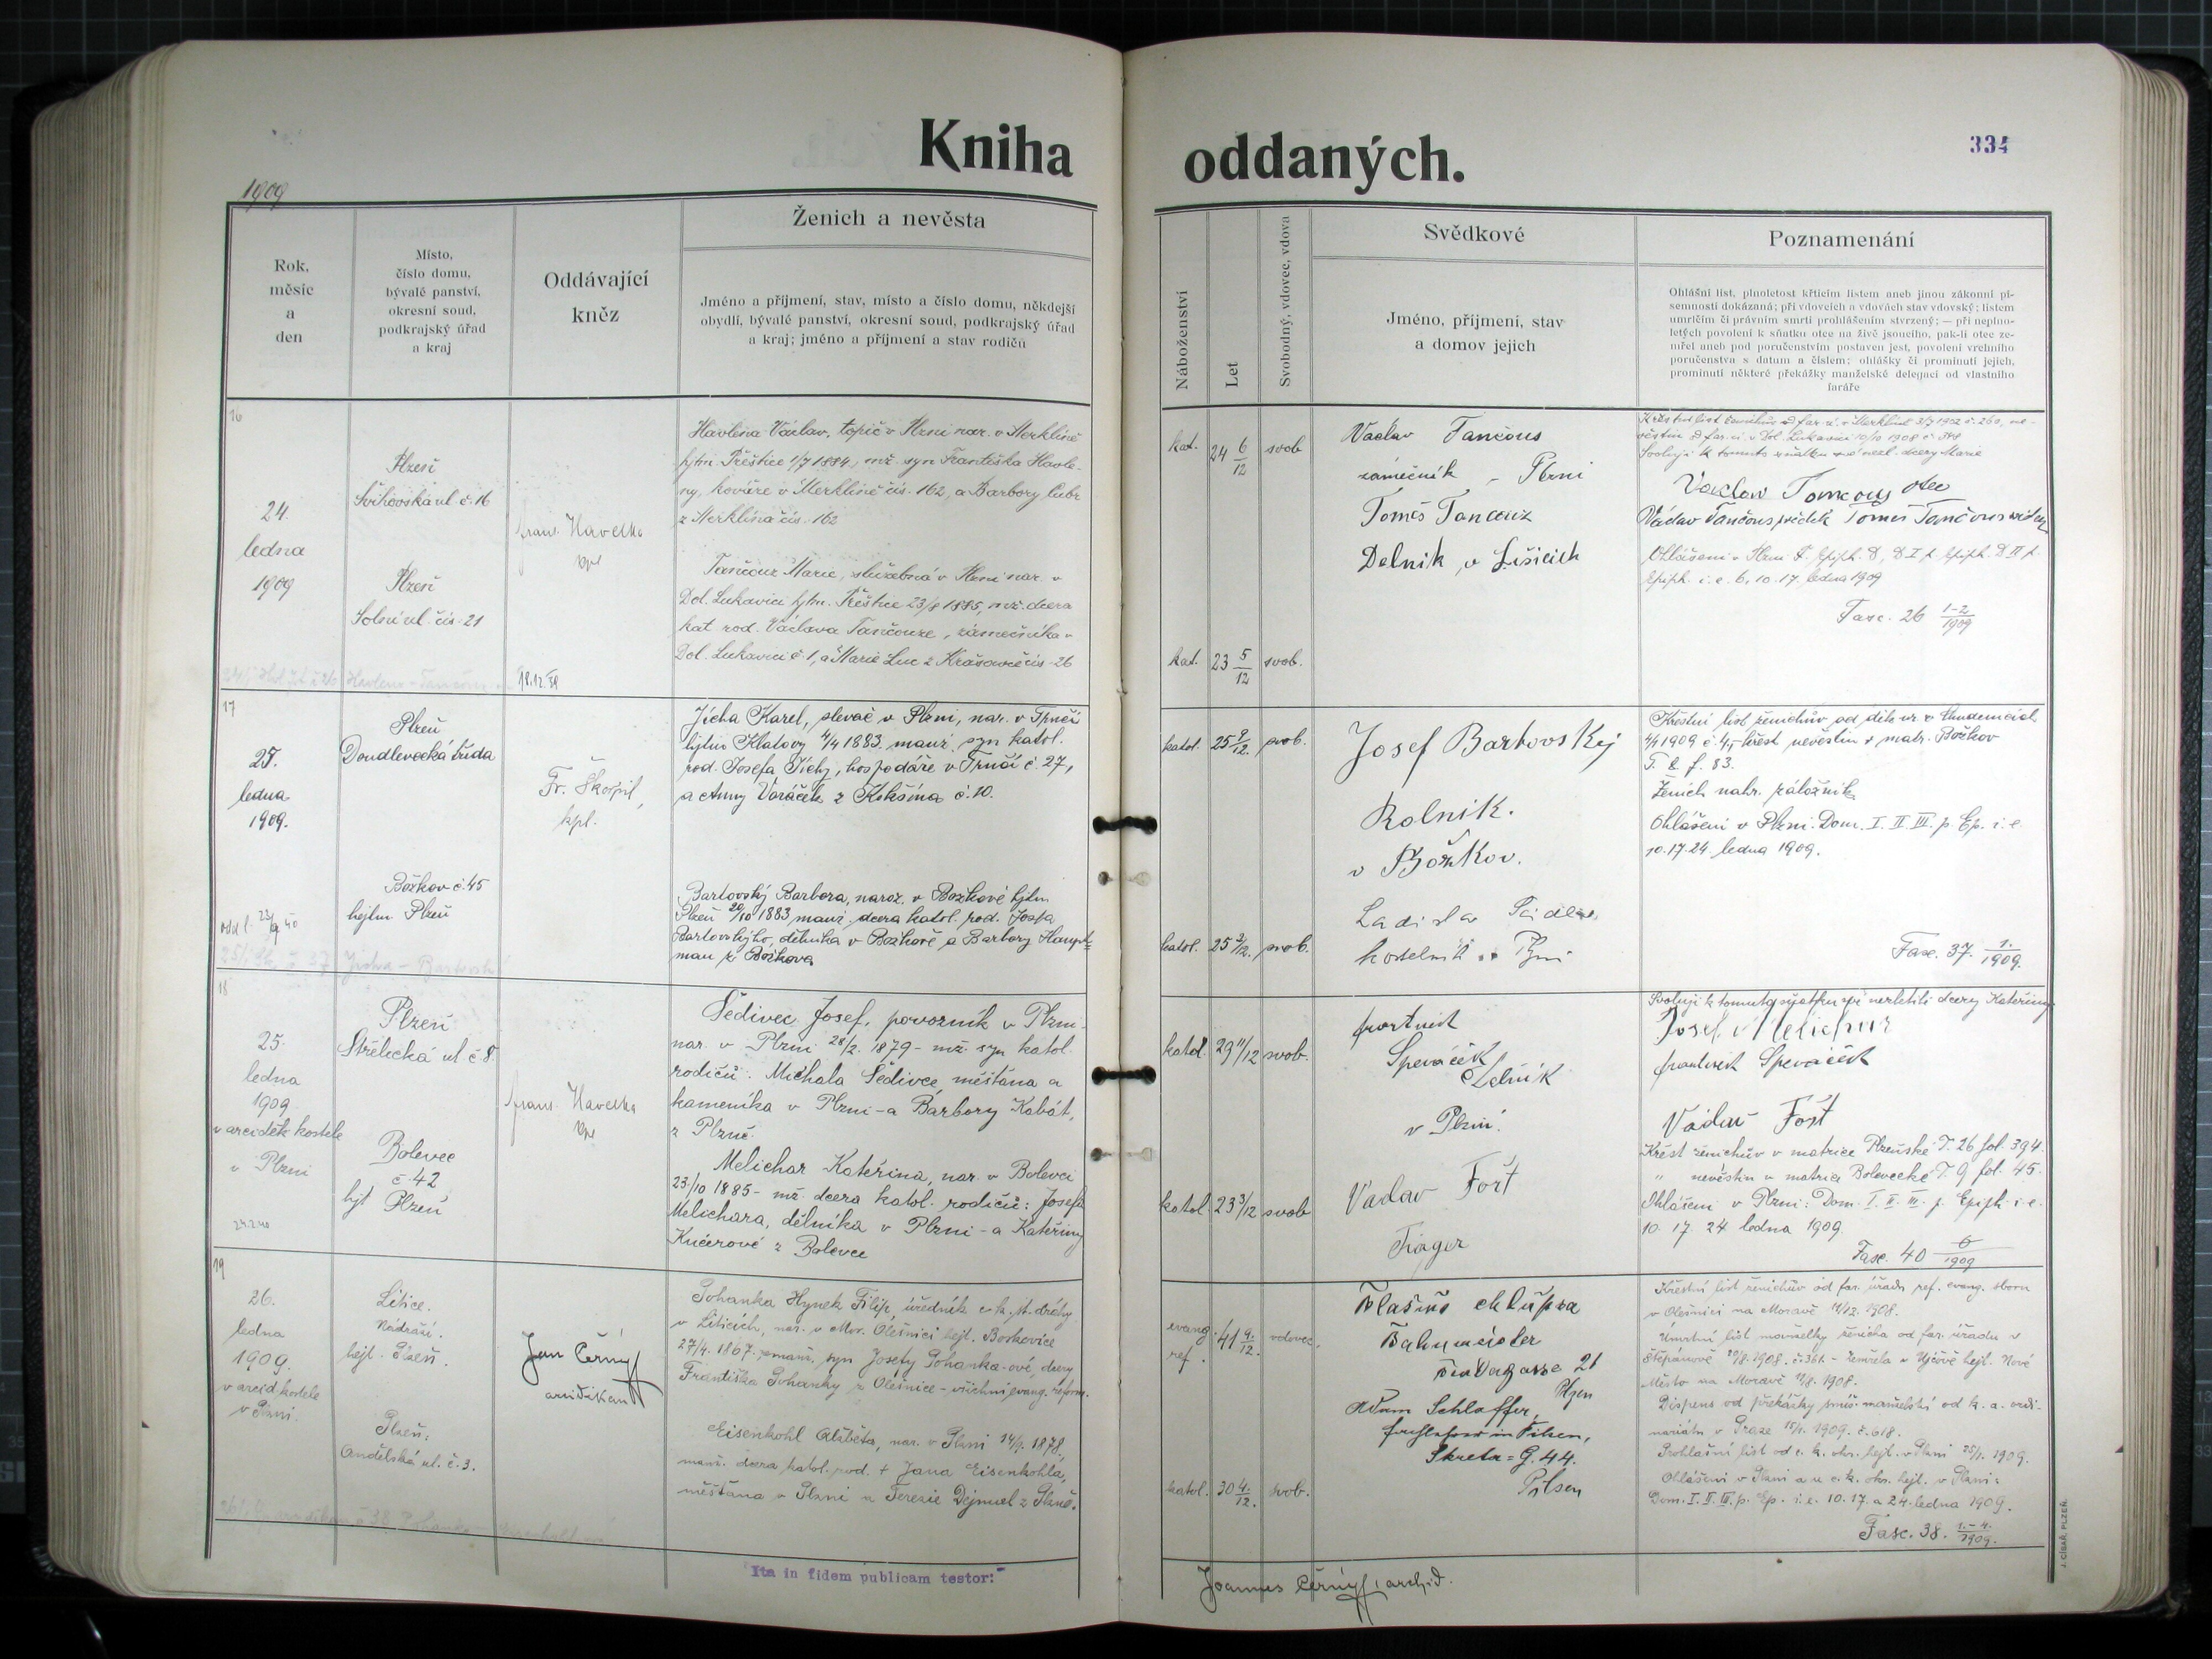 Kniha
oddaných.
334
1909
Rok,
měsíc
a
den
Místo,
číslo domu,
bývalé panství,
okresní soud,
podkrajský úřad
a kraj
Oddávající
kněz
Ženich a nevěsta
Jméno a příjmení, stav, místo a číslo domu, někdejší
obydlí, bývalé panství, okresní soud, podkrajský úřad
a kraj; jméno a příjmení a stav rodičů
Náboženství
Let
Svobodný, vdovec, vdova
Svědkové
Jméno, příjmení, stav
a domov jejich
Poznamenání
Ohlášní list, plnoletost křticím listem aneb jinou zákonní pí-
semností dokázaná; při vdovcích a vdovách stav vdovský; listem
umrlčím či právním smrti prohlášením stvrzený; — při neplno-
letých povolení k sňatku otce na živě jsoucího, pak-li otec ze-
mřel aneb pod poručenstvím postaven jest, povolení vrchního
poručenstva s datum a číslem; ohlášky či prominutí jejich,
prominutí některé překážky manželské delegací od vlastního
faráře
16
24.
ledna
1909
Plzeň
Švihovská ul. č. 16
Plzeň
Solní ul. čís. 21
Frant. Havelka
kpl
18.12.
Havlena Václav, topič v Plzni nar. v Merklíně
hjtm. Přeštice 1/7 1884, mž. syn Františka Havle-
ny, kováře v Merklíně čís. 162, a Barbory
z Merklína čís. 162
Tančouz Marie, služebná v Plzni nar. v
Dol. Lukavici hjtm. Přeštice 23/8 1885, mž. dcera
kat rod. Václava Tančouze, zámečníka v
Dol. Lukavici č. 1, a Marie Luc z Krašovic čís. 26
kat.
24 6/12
svob
kat.
23 5/12
svob.
Vaclav Tančous
zámečník - Plzni
Tomeš Tancouz
Delnik v Lišicich
Křestní list ženichův od far. ú. v Merklíně 3/7 1902 č. 260, ne-
věstin od far. ú. v Dol. Lukavici 10/10 1908 č.
Svoluji k tomuto sňatku své nezl. dcery Marie
Vaclav Tomcous otec
Václav Tančous svědek Tomeš Tančous
Ohlášeni v Plzni
Epiph. i. e. 6. 10. 17. ledna 1909
Fasc. 26 1-2/1909
17
25.
ledna
1909.
Plzeň
Doudlevecká třída
Božkov č. 45
hejtm Plzeň
Fr. Škorpil,
kpl.
Jícha Karel, slevač v Plzni, nar. v Trnčí
hjtm Klatovy 4/4 1883. manž. syn katol.
rod. Josefa Jíchy, hospodáře v Trnčí č. 27,
a Anny Voráček z Kokšína č. 10.
Bartovský Barbora, naroz. v Božkově hjtm
Plzeň 20/10 1883 manž. dcera katol. rod. Josefa
Bartovského, dělníka v Božkově a Barbory Haupt-
man z Božkova
katol.
25 9/12.
svob.
katol.
25 3/12.
svob.
Josef Bartovskej
Rolnik.
v Božkov.
Ladislav
kostelník v Plzni
Křestní list ženichův od děk. úř. v Chudenicích
4/1 1909 č. 4, křest nevěstin v matr. Božkov
f. 83.
Ženich nahr. záložník
Ohlášeni v Plzni. Dom. I. II. III. p. Ep. i. e.
10. 17. 24 ledna 1909.
Fasc. 37. 1./1909.
18
25.
ledna
1909
v arciděk. kostele
v Plzni
24.2.40
Plzeň
Střelecká ul č 8
Bolevec
č 42
hjt Plzeň
Frant. Havelka
kpl
Šedivec Josef, povozník v Plzni-
nar. v Plzni 28/2. 1879 - mž. syn katol.
rodičů: Michala Šedivce, měšťana a
kameníka v Plzni - a Barbory Kabát,
z Plzně.
Melichar Kateřina, nar. v Bolevci
23/10 1885 - mž. dcera katol. rodičů: Josefa
Melichara, dělníka v Plzni - a Kateřiny
Kučerové z Bolevce
katol.
29 11/12
svob.
katol.
23 3/12
svob
frantisek
Spevaček
Delnik
v Plzni.
Vaclav Fořt
Svoluji k tomuto sňatku své nezletilé dcery Kateřiny
Josef Melichar
frantisek Spevaček
Václav Fořt
Křest ženichův v matrice Plzeňské T. 26 fol. 394.
" nevěstin v matrice Bolevecké T. 9 fol. 45.
Ohlášeni v Plzni: Dom. I. II. III. p. Epiph. i. e.
10. 17. 24 ledna 1909.
Fasc. 40 6/1909
19
26.
ledna
1909.
v arcid. kostele
v Plzni.
Litice.
Nádraží.
hejt. Plzeň.
Plzeň:
Andělská ul. č. 3.
Jan Černý
arciděkan
Pohanka Hynek Filip, úředník c. k. st. dráhy
v Liticích, nar. v Mor. Olešnici hejt. Boskovice
27/4. 1867. nemanž. syn Josefy Pohanka-ové, dcery
Františka Pohanky z Olešnice - všichni evang. reform.
Eisenkohl Alžběta, nar. v Plzni 14/9. 1878.
manž. dcera katol. rod. + Jana Eisenkohla,
měšťana v Plzni a Terezie Dejmal z Plzně.
evang.
ref.
41 9./12.
vdovec.
katol.
30 4./12.
svob.
Bahnmeister
21
Plzen
Adam Schlaffer,
in Pilsen,
Skreta-G. 44.
Pilsen
Křestní list ženichův od far. úřadu ref. evang. sboru
v Olešnici na Moravě 14/12. 1908.
Úmrtní list manželky ženicha od far. úřadu v
Štěpánově 20/8. 1908. č. 361. - Zemřela v Ujčově hejt. Nové
Město na Moravě 12/8. 1908.
Dispens od překážky smíš. manželství od k. a. ordi-
nariátu v Praze 15/1. 1909. č. 618.
Prohlašní list od c. k. okr. hejt. v Plzni 25/1. 1909.
Ohlášeni v Plzni a u c. k. okr. hejt. v Plzni:
Dom. I. II. III. p. Ep. i. e. 10. 17. a 24. ledna 1909.
Fasc. 38. 1.-4./1909.
"Ita in fidem publicam testor:"
Joannes Černý, archid.
J. CÍSAŘ, PLZEŇ.